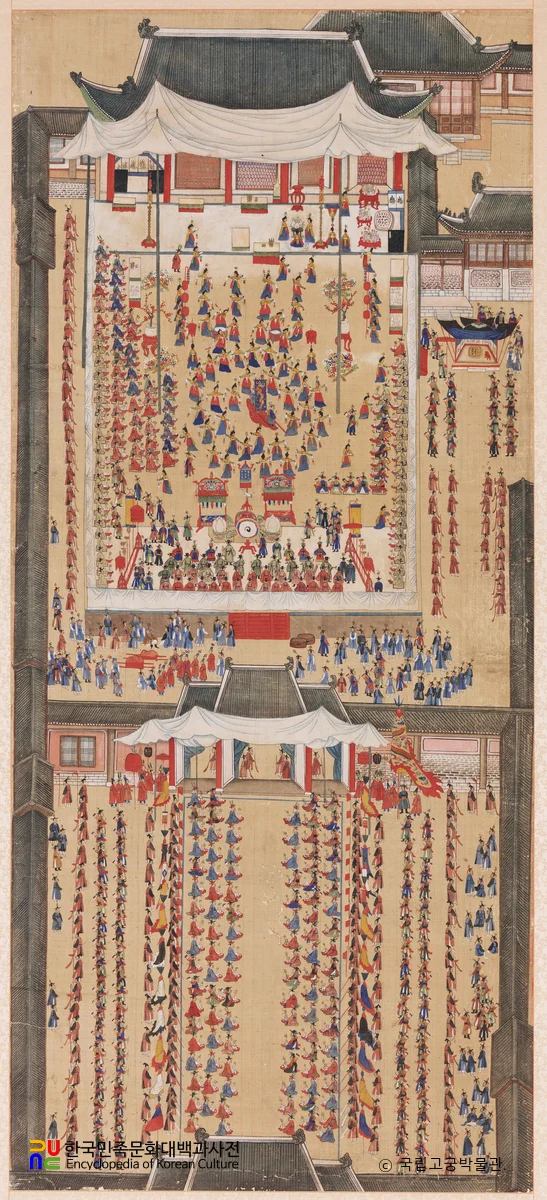 한국민족문화대백과사전
Encyclopedia of Korean Culture
© 국립고궁박물관